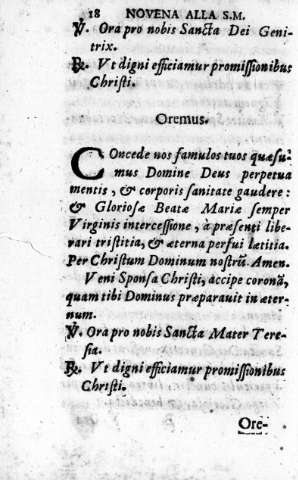 18 NOVENA ALLA S.M.
℣. Ora pro nobis Sancta Dei Geni-
trix.
℟. Vt digni efficiamur promissionibus
Christi.
Oremus.
COncede nos famulos tuos quæsu-
mus Domine Deus perpetua
mentis, & corporis sanitate gaudere:
& Gloriosæ Beatæ Mariæ semper
Virginis intercessione, à præsenti libe-
rari tristitia, & æterna perfui lætitia.
Per Christum Dominum nostrũ. Amen.
Veni Sponsa Christi, accipe coronã,
quam tibi Dominus præparauit in æter-
num.
℣. Ora pro nobis Sancta Mater Tere-
sia.
℟. Vt digni efficiamur promissionibus
Christi.
Ore-